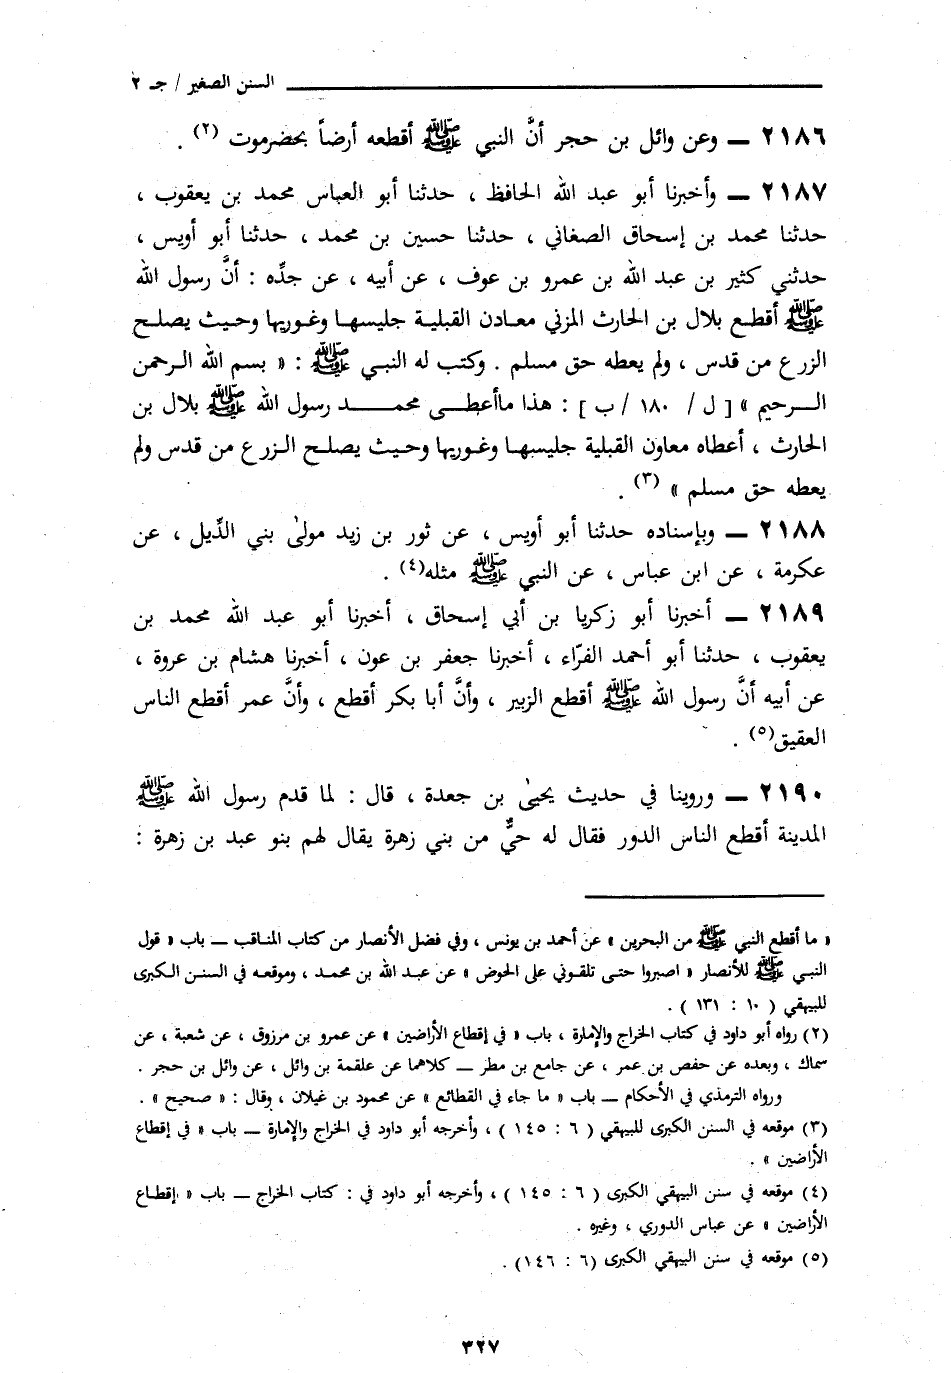 السنن الصغير / جـ ٢
٢١٨٦ — وعن وائل بن حجر أنَّ النبي ﷺ أقطعه أرضاً بحضرموت (٢) .
٢١٨٧ — وأخبرنا أبو عبد الله الحافظ ، حدثنا أبو العباس محمد بن يعقوب ،
حدثنا محمد بن إسحاق الصغاني ، حدثنا حسين بن محمد ، حدثنا أبو أويس ،
حدثني كثير بن عبد الله بن عمرو بن عوف ، عن أبيه ، عن جدِّه : أنَّ رسول الله
ﷺ أقطع بلال بن الحارث المزني معادن القبلية جليسها وغوريها وحيث يصلح
الزرع من قدس ، ولم يعطه حق مسلم . وكتب له النبي ﷺ : « بسم الله الرحمن
الرحيم » [ ل / ١٨٠ / ب ] : هذا ماأعطى محمد رسول الله ﷺ بلال بن
الحارث ، أعطاه معاون القبلية جليسبها وغوريها وحيث يصلح الزرع من قدس ولم
يعطه حق مسلم » (٣) .
٢١٨٨ — وبإسناده حدثنا أبو أويس ، عن ثور بن زيد مولىٰ بني الدِّيل ، عن
عكرمة ، عن ابن عباس ، عن النبي ﷺ مثله(٤) .
٢١٨٩ — أخبرنا أبو زكريا بن أبي إسحاق ، أخبرنا أبو عبد الله محمد بن
يعقوب ، حدثنا أبو أحمد الفرّاء ، أخبرنا جعفر بن عون ، أخبرنا هشام بن عروة ،
عن أبيه أنَّ رسول الله ﷺ أقطع الزبير ، وأنَّ أبا بكر أقطع ، وأنَّ عمر أقطع الناس
العقيق(٥) .
٢١٩٠ — وروينا في حديث يحيىٰ بن جعدة ، قال : لما قدم رسول الله ﷺ
المدينة أقطع الناس الدور فقال له حيٌّ من بني زهرة يقال لهم بنو عبد بن زهرة :
« ما أقطع النبي ﷺ من البحرين » عن أحمد بن يونس ، وفي فضل الأنصار من كتاب المناقب — باب « قول
النبي ﷺ للأنصار « اصبروا حتى تلقوني على الحوض » عن عبد الله بن محمد ، وموقعه في السنن الكبرى
للبيهقي ( ١٠ : ١٣١ ) .
(٢) رواه أبو داود في كتاب الخراج والإمارة ، باب « في إقطاع الأراضين » عن عمرو بن مرزوق ، عن شعبة ، عن
سماك ، وبعده عن حفص بن عمر ، عن جامع بن مطر — كلاهما عن علقمة بن وائل ، عن وائل بن حجر .
ورواه الترمذي في الأحكام — باب « ما جاء في القطائع » عن محمود بن غيلان ، وقال : « صحيح » .
(٣) موقعه في السنن الكبرى للبيهقي ( ٦ : ١٤٥ ) ، وأخرجه أبو داود في الخراج والإمارة — باب « في إقطاع
الأراضين » .
(٤) موقعه في سنن البيهقي الكبرى ( ٦ : ١٤٥ ) ، وأخرجه أبو داود في : كتاب الخراج — باب « إقطاع
الأراضين » عن عباس الدوري ، وغيره .
(٥) موقعه في سنن البيهقي الكبرى (٦ : ١٤٦) .
٣٢٧